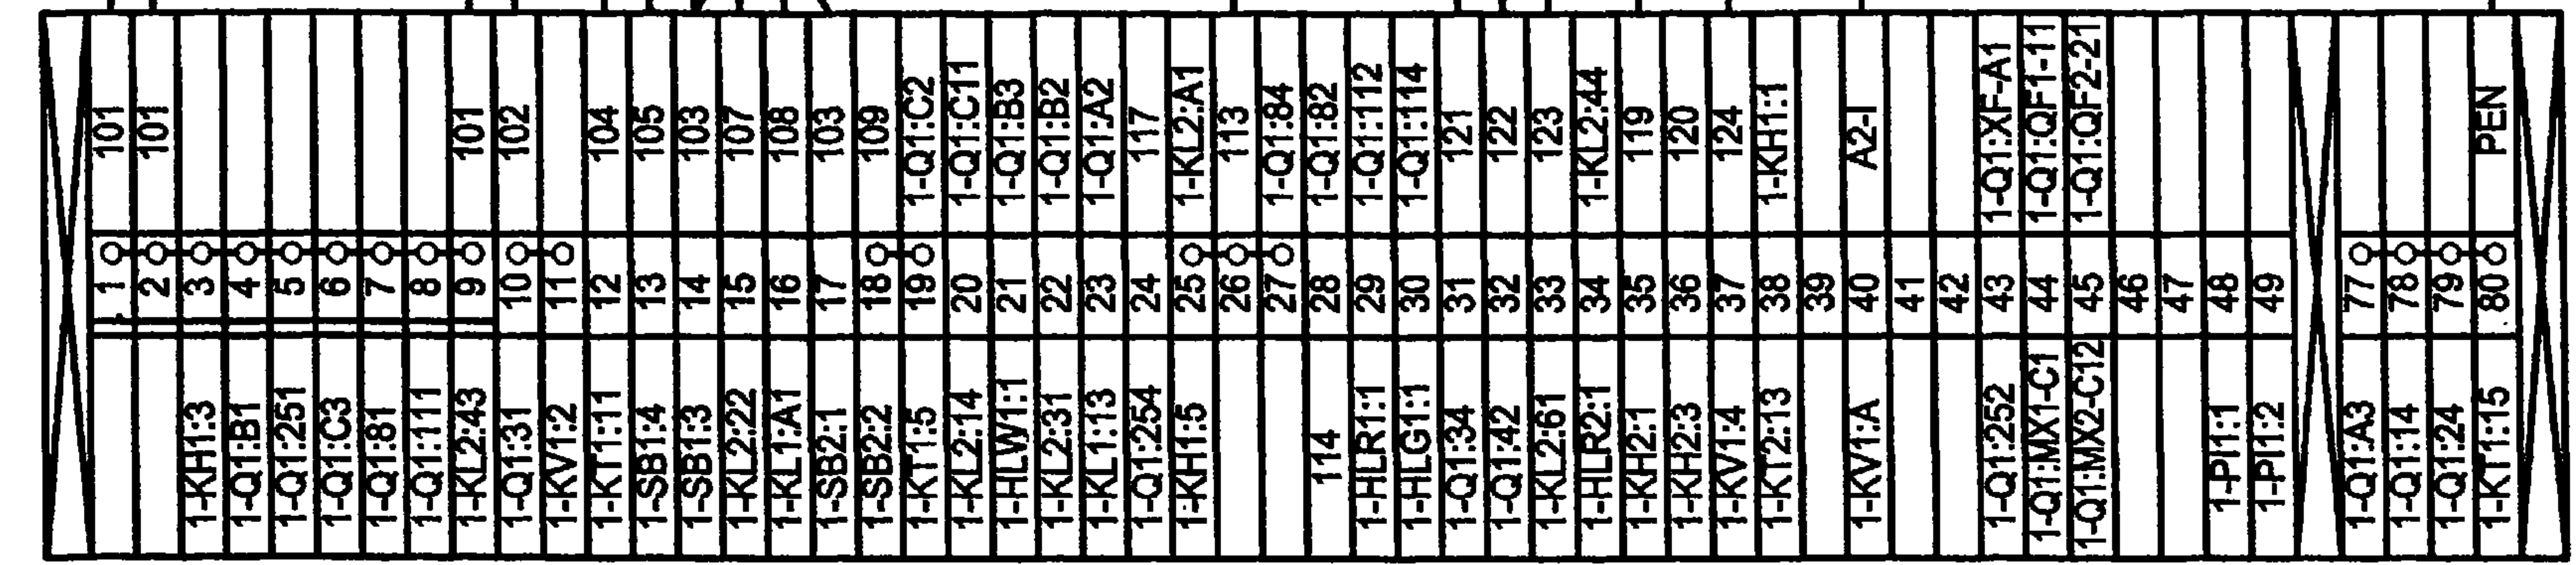 101 1
101 2
3 1-KH1:3
4 1-Q1:B1
5 1-Q1:251
6 1-Q1:C3
7 1-Q1:81
8 1-Q1:111
101 9 1-KL2:43
102 10 1-Q1:31
11 1-KV1:2
104 12 1-KT1:11
105 13 1-SB1:4
103 14 1-SB1:3
107 15 1-KL2:22
108 16 1-KL1:A1
103 17 1-SB2:1
109 18 1-SB2:2
1-Q1:C2 19 1-KT1:5
1-Q1:C11 20 1-KL2:14
1-Q1:B3 21 1-HLW1:1
1-Q1:B2 22 1-KL2:31
1-Q1:A2 23 1-KL1:13
117 24 1-Q1:254
1-KL2:A1 25 1-KH1:5
113 26
1-Q1:84 27
1-Q1:82 28 114
1-Q1:112 29 1-HLR1:1
1-Q1:114 30 1-HLG1:1
121 31 1-Q1:34
122 32 1-Q1:42
123 33 1-KL2:61
1-KL2:44 34 1-HLR2:1
119 35 1-KH2:1
120 36 1-KH2:3
124 37 1-KV1:4
1-KH1:1 38 1-KT2:13
39
A2-I 40 1-KV1:A
41
42
1-Q1:XF-A1 43 1-Q1:252
1-Q1:QF1-11 44 1-Q1:MX1-C1
1-Q1:QF2-21 45 1-Q1:MX2-C12
46
47
48 1-PI1:1
49 1-PI1:2
77 1-Q1:A3
78 1-Q1:14
79 1-Q1:24
PEN 80 1-KT1:15